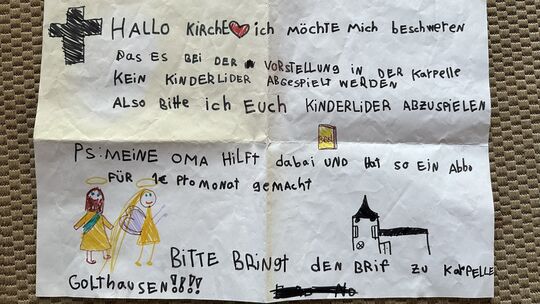 HALLO KIRCHE ich MÖCHTE Mich beschweren
DAS ES BEI DER VORSTELLUNG IN DER KArpelle
KEIN KINDERLIDER ABGESPIELT WERDEN
ALSO Bitte ich EUCH KINDERLIDER ABZUSPIELEN
PS: MEINE OMA HiLFT dabai UND Hat SO EIN Abbo
FÜR 1€ PRO MONAT gemacht
BITTE BRiNgt DEN BRiF ZU KARPELLE
GOLTHAUSEN!!!!